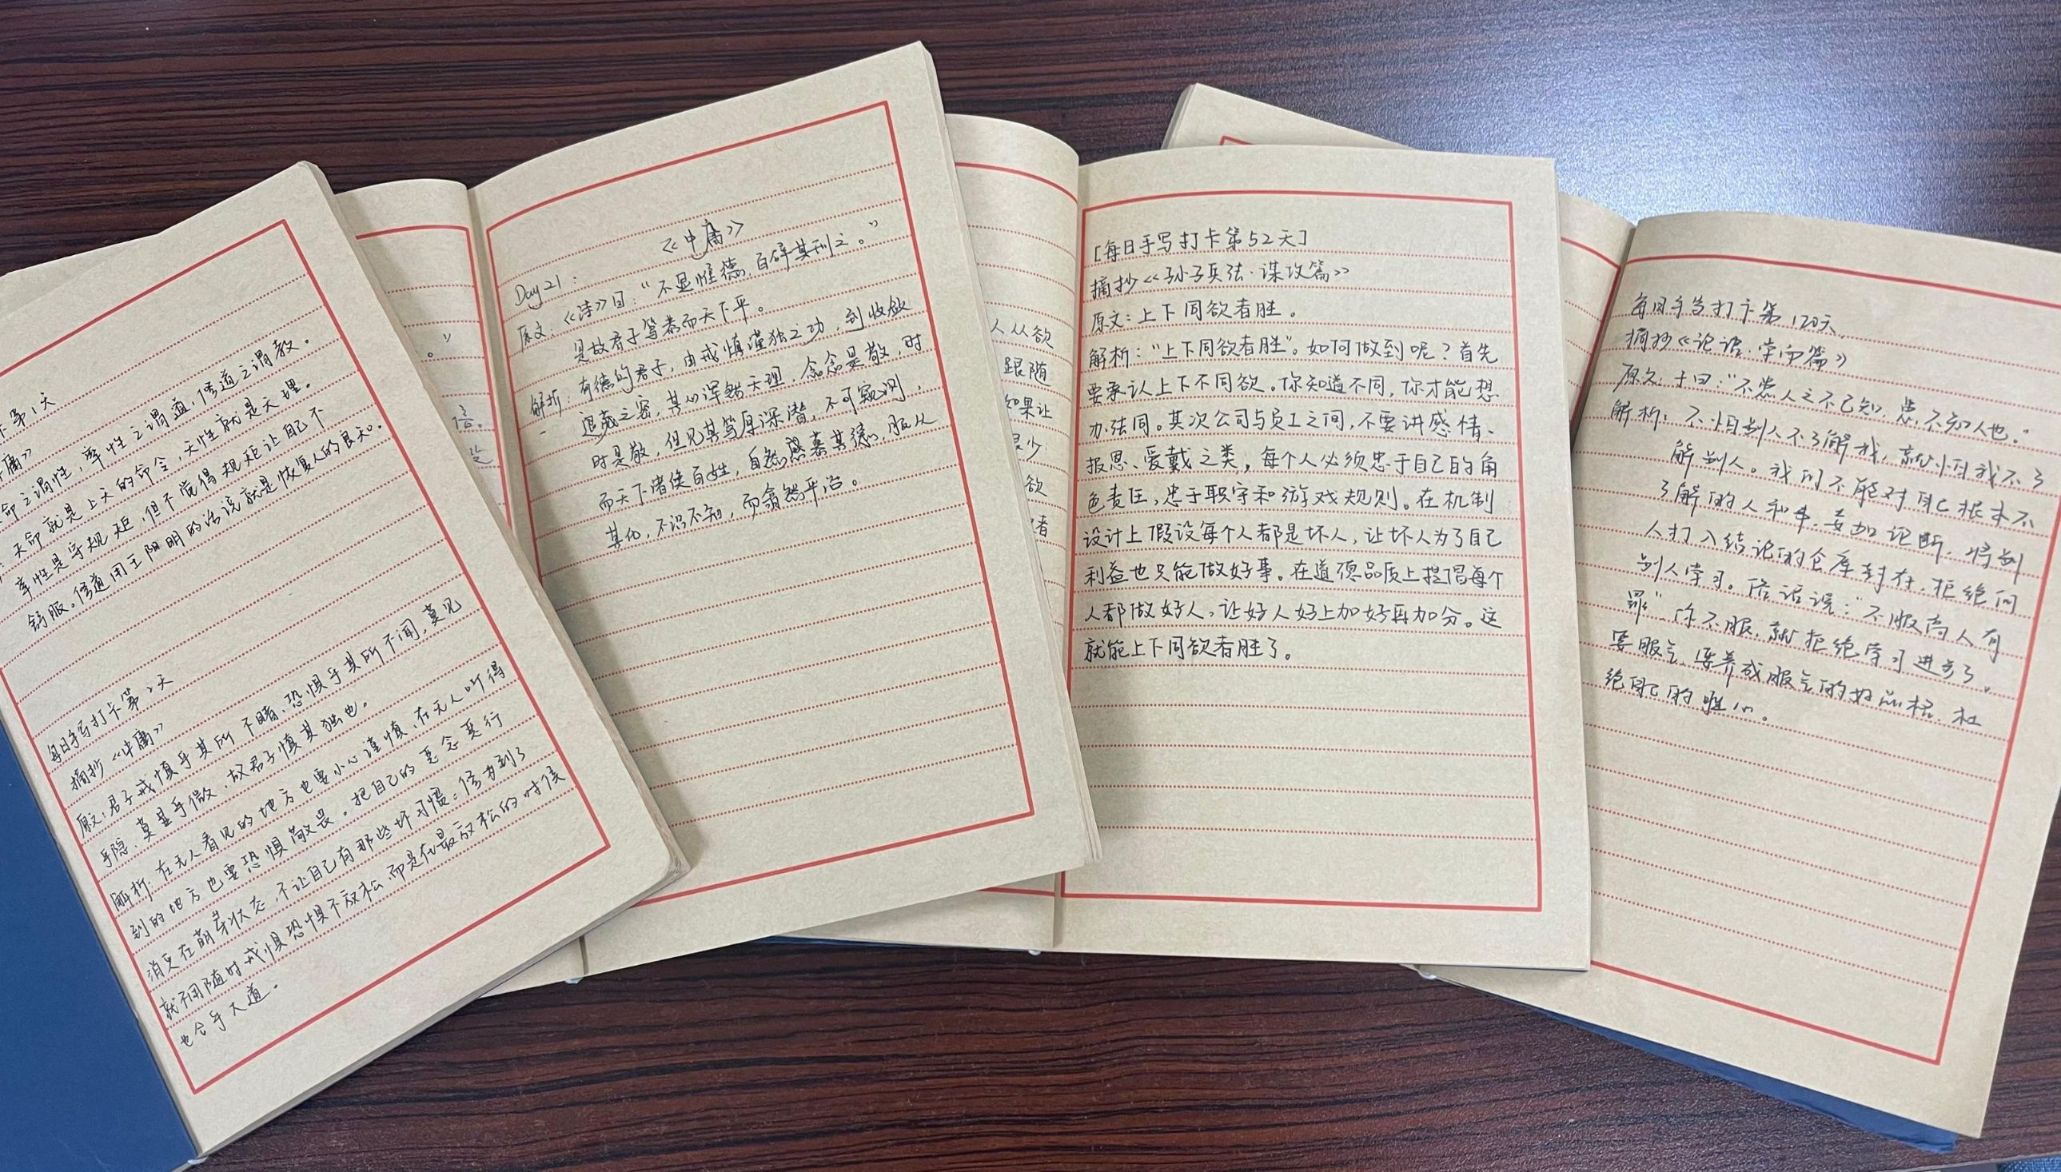 卡第1天
庸》
命之谓性，率性之谓道，修道之谓教。
天命就是上天的命令，天性就是天理。
率性是守规矩，但不觉得规矩让自己不
舒服。修道用王阳明的话说就是恢复人的良知。
每日手写打卡第2天
摘抄《中庸》
原文：君子戒慎乎其所不睹，恐惧乎其所不闻，莫见
乎隐，莫显乎微，故君子慎其独也。
解析：在无人看见的地方也要小心谨慎，在无人听得
到的地方也要恐惧敬畏。把自己的恶念恶行
消灭在萌芽状态，不让自己有那些坏习惯。修为到了
就不用随时戒惧恐惧不放松，而是在最放松的时候
也合乎大道。
。”
信。
《中庸》
Day 21：
原文：《诗》曰：“不显惟德，百辟其刑之。”
是故君子笃恭而天下平。
解析：有德的君子，由戒慎谨独之功，到收敛
退藏之密，其心浑然天理，念念是敬，时
时是敬，但见其笃厚深潜，不可窥测，
而天下诸侯百姓，自然感慕其德，服从
其化，不识不知，而翕然平治。
人从欲
跟随
如果让
很少
欲
者
[每日手写打卡第52天]
摘抄《孙子兵法·谋攻篇》
原文：上下同欲者胜。
解析：“上下同欲者胜”。如何做到呢？首先
要承认上下不同欲。你知道不同，你才能想
办法同。其次公司与员工之间，不要讲感情、
报恩、爱戴之类，每个人必须忠于自己的角
色责任，忠于职守和游戏规则。在机制
设计上假设每个人都是坏人，让坏人为了自己
利益也只能做好事。在道德品质上提倡每个
人都做好人，让好人好上加好再加分。这
就能上下同欲者胜了。
每日手写打卡第120天
摘抄《论语·学而篇》
原文：子曰：“不患人之不己知，患不知人也。”
解析：不怕别人不了解我，就怕我不了
解别人。我们不能对自己根本不
了解的人和事，妄加论断，将别
人打入结论的仓库封存，拒绝向
别人学习。俗话说：“不服高人有
罪”你不服，就拒绝学习进步了。
要服气，涤养成服气的好品格，杜
绝自己的胜心。